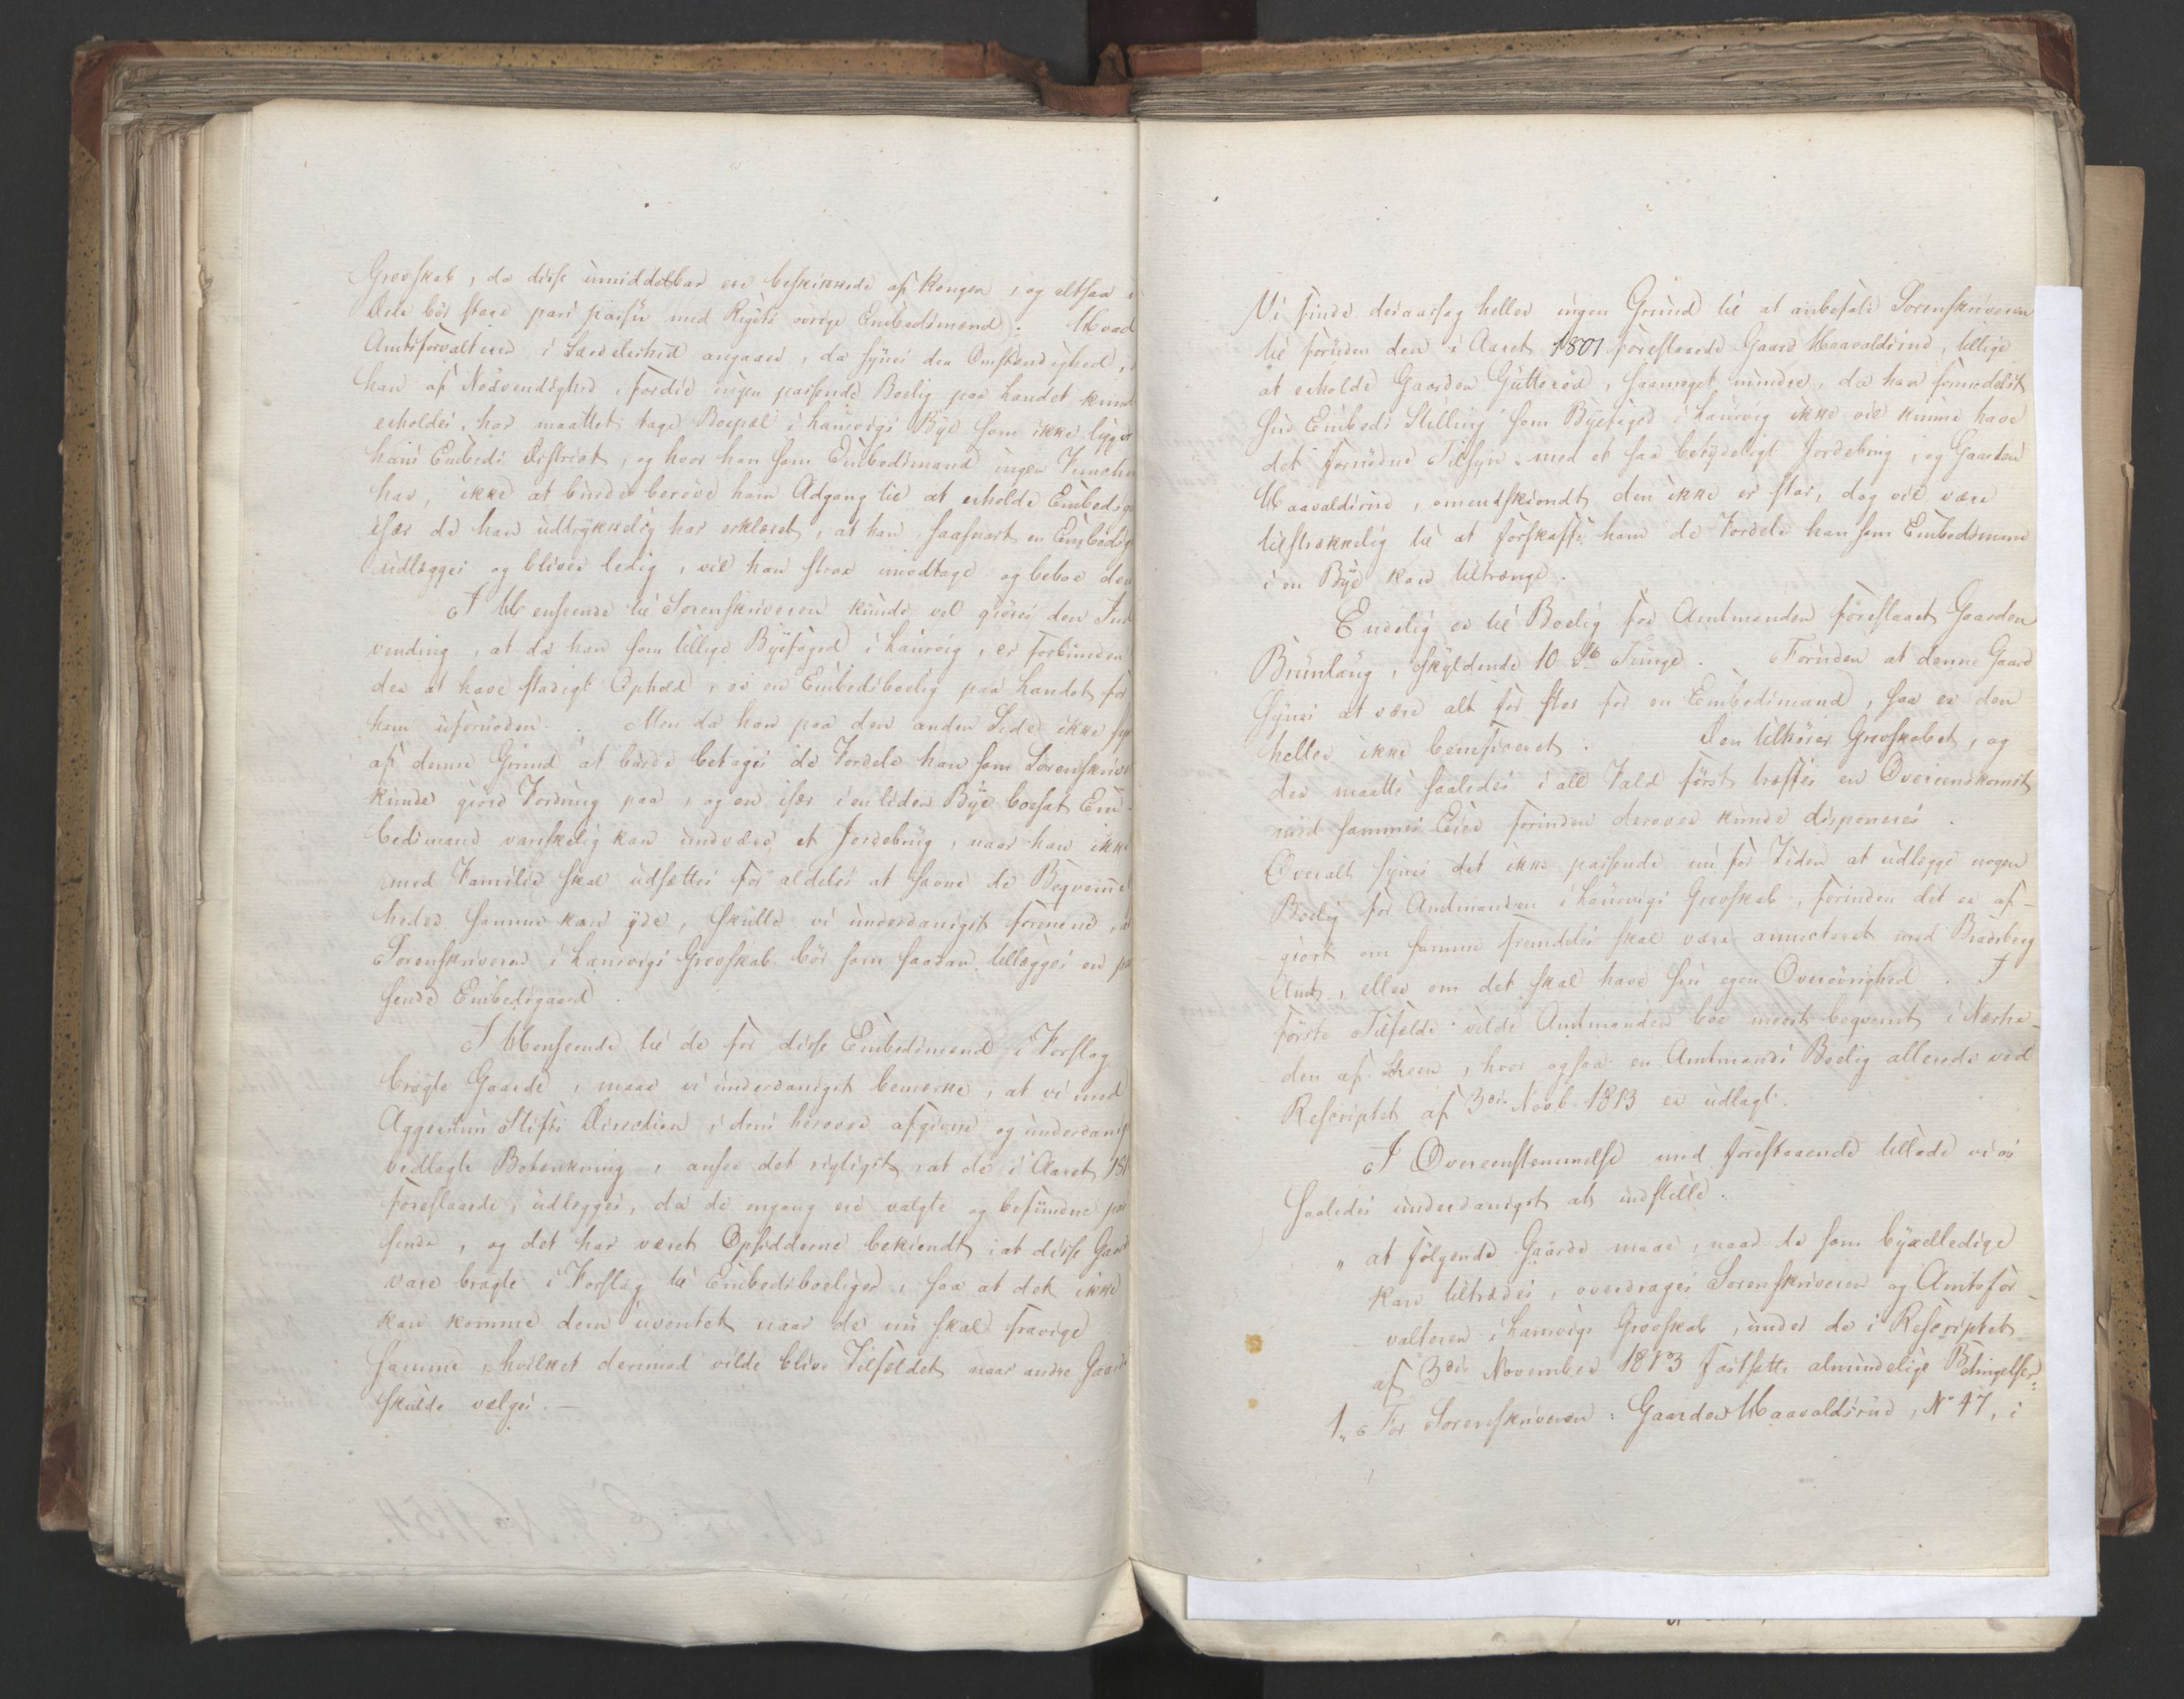 Grevskab, da disse umiddelbar ere beskikkede af Kongen, og altsaa i
Dele bör staae pari passu med Rigets övrige Embedsmænd. Hvad
Amtsforvalteren i Særdeleshed angaaer, da synes den Omstændighed,
han af Nödvendighed, fordie ingen passende Boelig paa Landet kund
erholdes, har maattet tage Boepæl i Laurvigs Bye som ikke ligger
hans Embeds District, og hvor han som Embedsmand ingen
har, ikke at burde beröve ham Adgang til at erholde Embedsg
især da han udtrykkelig har erklæret, at han saasnart en Embedsg
udlægges og bliver ledig, vil han strax modtage og beboe den
I Henseende til Sorenskriveren kunde vel giöres den Ind
vending, at da han som tillige Byefoged i Laurvig, er forbunden
der at have stadigt Ophold, er en Embedsboelig paa Landet for
ham ufornöden. Men da han paa den anden Side ikke syn
af denne Grund at burde betages de Fordele han som Sorenskriver
kunde giöre Fordring paa, og en især i en liden Bye boesat Em-
bedsmand vanskelig kan undvære et Jordebrug, naar han ikke
med Familie skal udsættes for aldeles at savne de Beqvemme
heder samme kan yde, skulle vi underdanigst formene, at
Sorenskriveren i Laurvigs Grevskab bör som saadan tillægges en pa
sende Embedsgaard.
I Henseende til de for disse Embedsmænd i Forslag
bragte Gaarde, maae vi underdanigst bemærke, at vi med
Aggershuus Stifts Direction i dens herover afgivne og underdanigst
vedlagte Betænkning, ansee det rigtigst, at de i Aaret 180
foreslaaede, udlægges, da de engang ere valgte og befundne pas
sende, og det har været Opsidderne bekiendt, at disse Gaar
vare bragte i Forslag til Embedsboeliger, saa at det ikke
kan komme dem uventet naar de nu skal fravige
samme, hvilket derimod vilde blive Tilfældet naar andre Gaard
skulde vælges.
Vi finde desaarsag heller ingen Grund til at anbefale Sorenskriveren
til foruden den i Aaret 1801 foreslaaede Gaard Haavaldsrud, tillige
at erholde Gaarden Gutteröd, saameget mindre, da han formedelst
sin Embeds Stilling som Byefoged i Laurvig ikke vil kunne have
det fornödne Tilsyn med et saa betydeligt Jordebrug, og Gaarden
Haavaldsrud, omendskiöndt den ikke er stor, dog vil være
tilstrækkelig til at forskaffe ham de Fordele han som Embedsmand
i en Bye kan tiltrænge.
Endelig er til Boelig for Amtmanden foreslaaet Gaarden
Brunlaug, skyldende 10 Tunge. Foruden at denne Gaard
synes at være alt for stor for en Embedsmand, saa er den
heller ikke beneficeret. Den tilhörer Grevskabet, og
der maatte saaledes i all Fald först træffes en Overeenskomst
med sammes Eier forinden derover kunde disponeres.
Overalt synes det ikke passende nu for Tiden at udlægge nogen
Boelig for Amtmanden i Laurvigs Grevskab, forinden det er af-
giort om samme fremdeles skal være annecteret med Bradsberg
Amt, eller om det skal have sin egen Overövrighed. I
förste Tilfælde vilde Amtmanden boe meest beqvemt i Nærhe-
den af Skeen, hvor ogsaa en Amtmands Boelig allerede ved
Rescriptet af 3die Novb. 1813 er udlagt.
I Overeenstemmelse med forestaaende tillade vi os
saaledes underdanigst at indstille:
„at fölgende Gaarde maae, naar de som byxelledige
kan tiltrædes, overdrages Sorenskriveren og Amtsfor-
valteren i Laurvigs Grevskab, under de i Rescriptet
af 3die November 1813 fastsatte almindelige Betingelser:
1., For Sorenskriveren: Gaarden Haavaldsrud, No 47, i